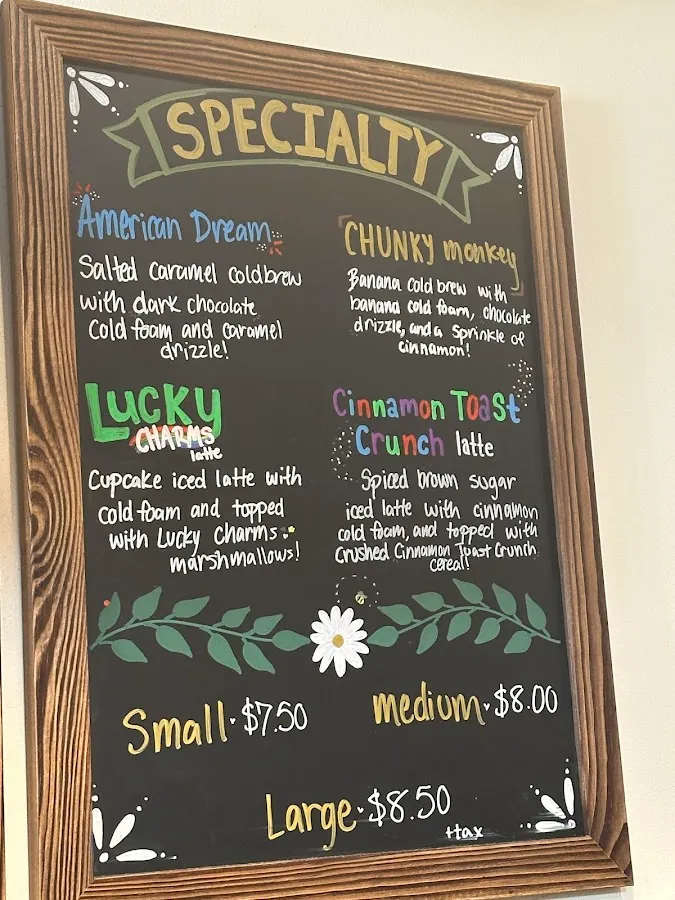 SPECIALTY
American Dream
Salted caramel coldbrew
with dark chocolate
cold foam and caramel
drizzle!
CHUNKY monkey
Banana cold brew with
banana cold foam, chocolate
drizzle, and a sprinkle of
cinnamon!
LUCKY
CHARMS
latte
Cupcake iced latte with
cold foam and topped
with Lucky Charms
marshmallows!
Cinnamon Toast
Crunch latte
Spiced brown sugar
iced latte with cinnamon
cold foam, and topped with
crushed Cinnamon Toast Crunch
cereal!
Small · $7.50
medium · $8.00
Large · $8.50
+tax